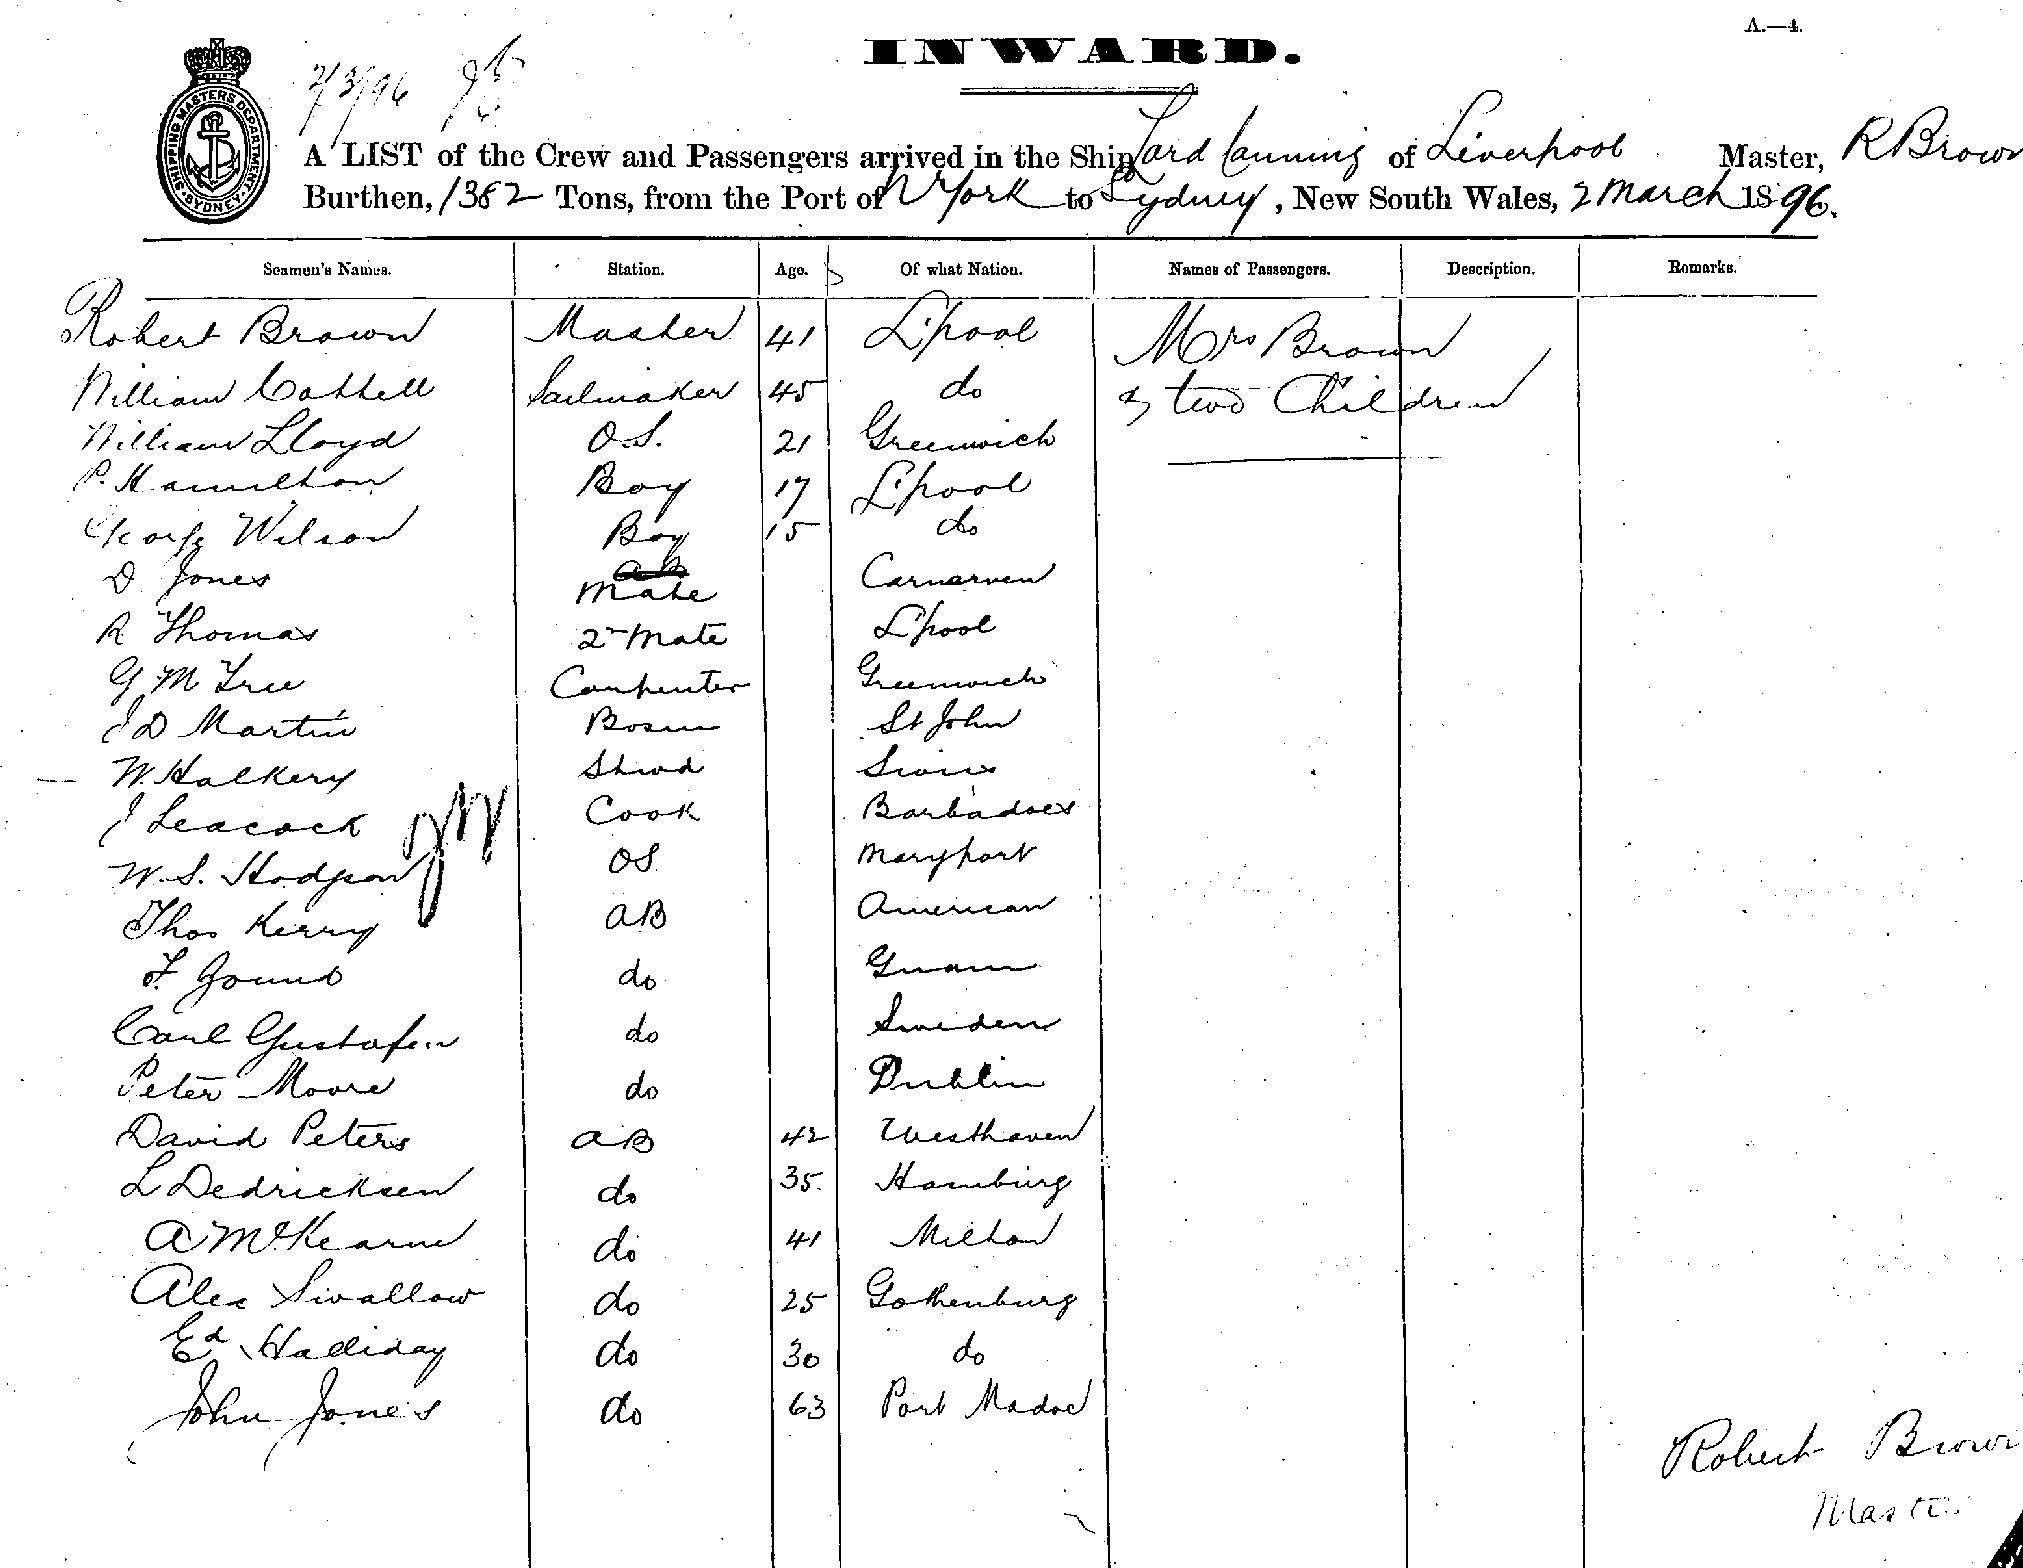 A.—4.
INWARD.
2/3/96
SHIPPING MASTERS DEPARTMENT SYDNEY
A LIST of the Crew and Passengers arrived in the Ship Lord Canning of Liverpool Master, R Brown
Burthen, 1382 Tons, from the Port of N York to Sydney, New South Wales, 2 March 1896.
Seamen's Names. Station. Age. Of what Nation. Names of Passengers. Description. Remarks.
Robert Brown Master 41 L'pool Mrs Brown
William Cottell Sailmaker 45 do & two Children
William Lloyd O.S. 21 Greenwich
P. Hamilton Boy 17 L'pool
George Wilson Boy 15 do
D Jones Mate Carnarven
R Thomas 2nd Mate L'pool
G M Tree Carpenter Greenwich
J D Martin Bosun St John
W. Halkery Stwd
J Leacock Cook Barbadoes
W. S. Hodgson OS Maryport
Thos Kerry AB American
F. do
Carl Gustafsen do Sweden
Peter Moore do Dublin
David Peters AB 42 Westhaven
L Dedricksen do 35 Hamburg
A McKearne do 41 Milton
Alex Swallow do 25 Gothenburg
Ed Halliday do 30 do
John Jones do 63 Port Madoc
Robert Brown
Master